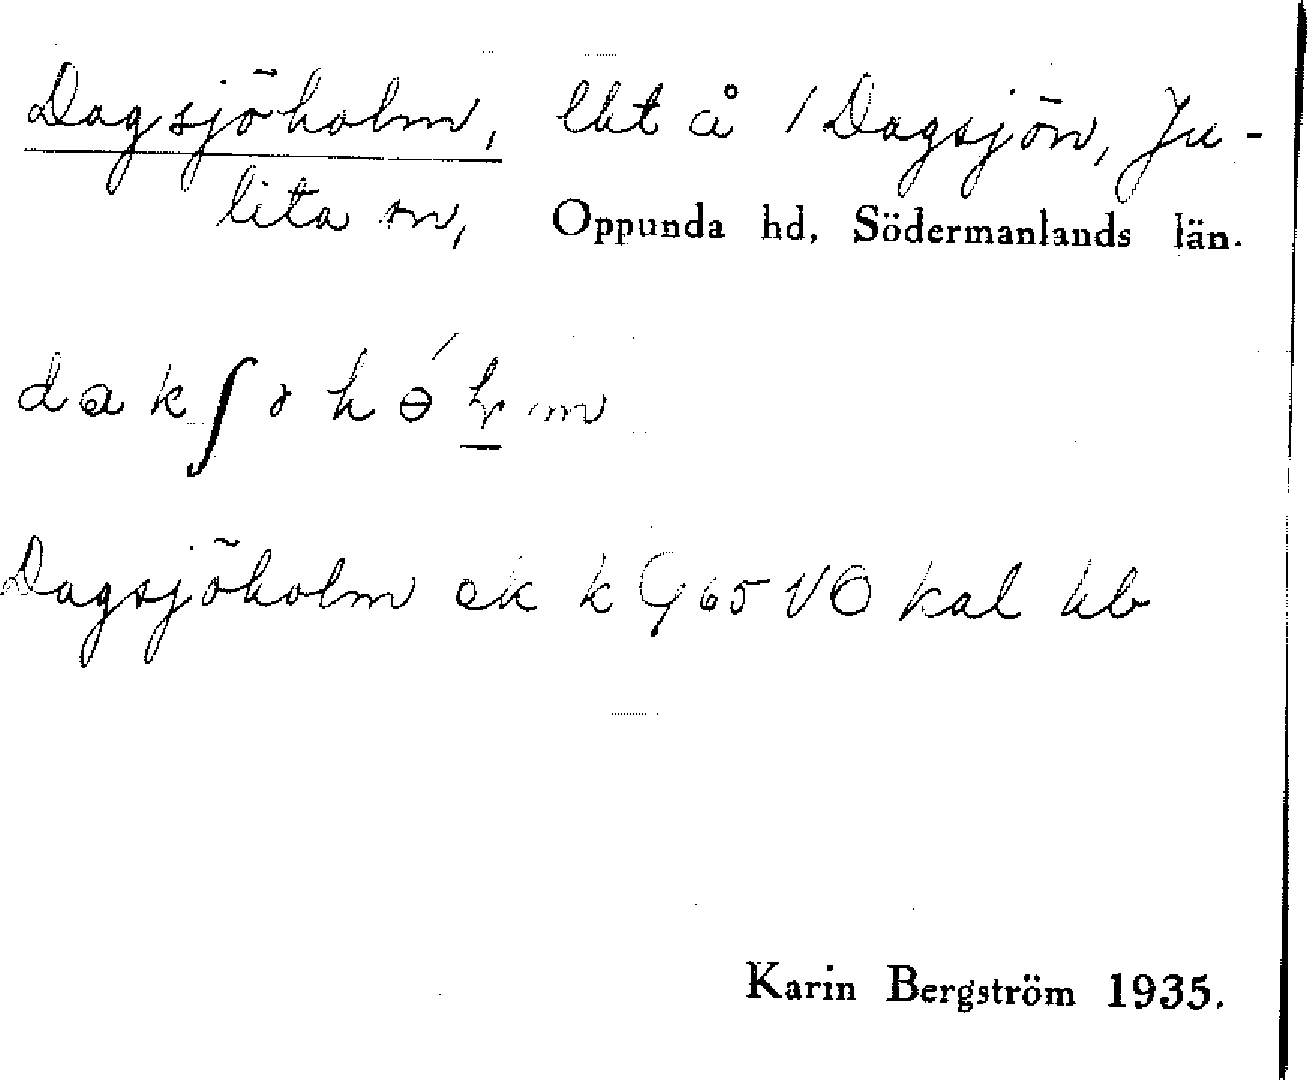 Dagsjöholm, lht å / Dagsjön, Ju-
lita sn, Oppunda hd, Södermanlands län.
Dagsjöholm ek k G 65 VO kal hb
Karin Bergström 1935.